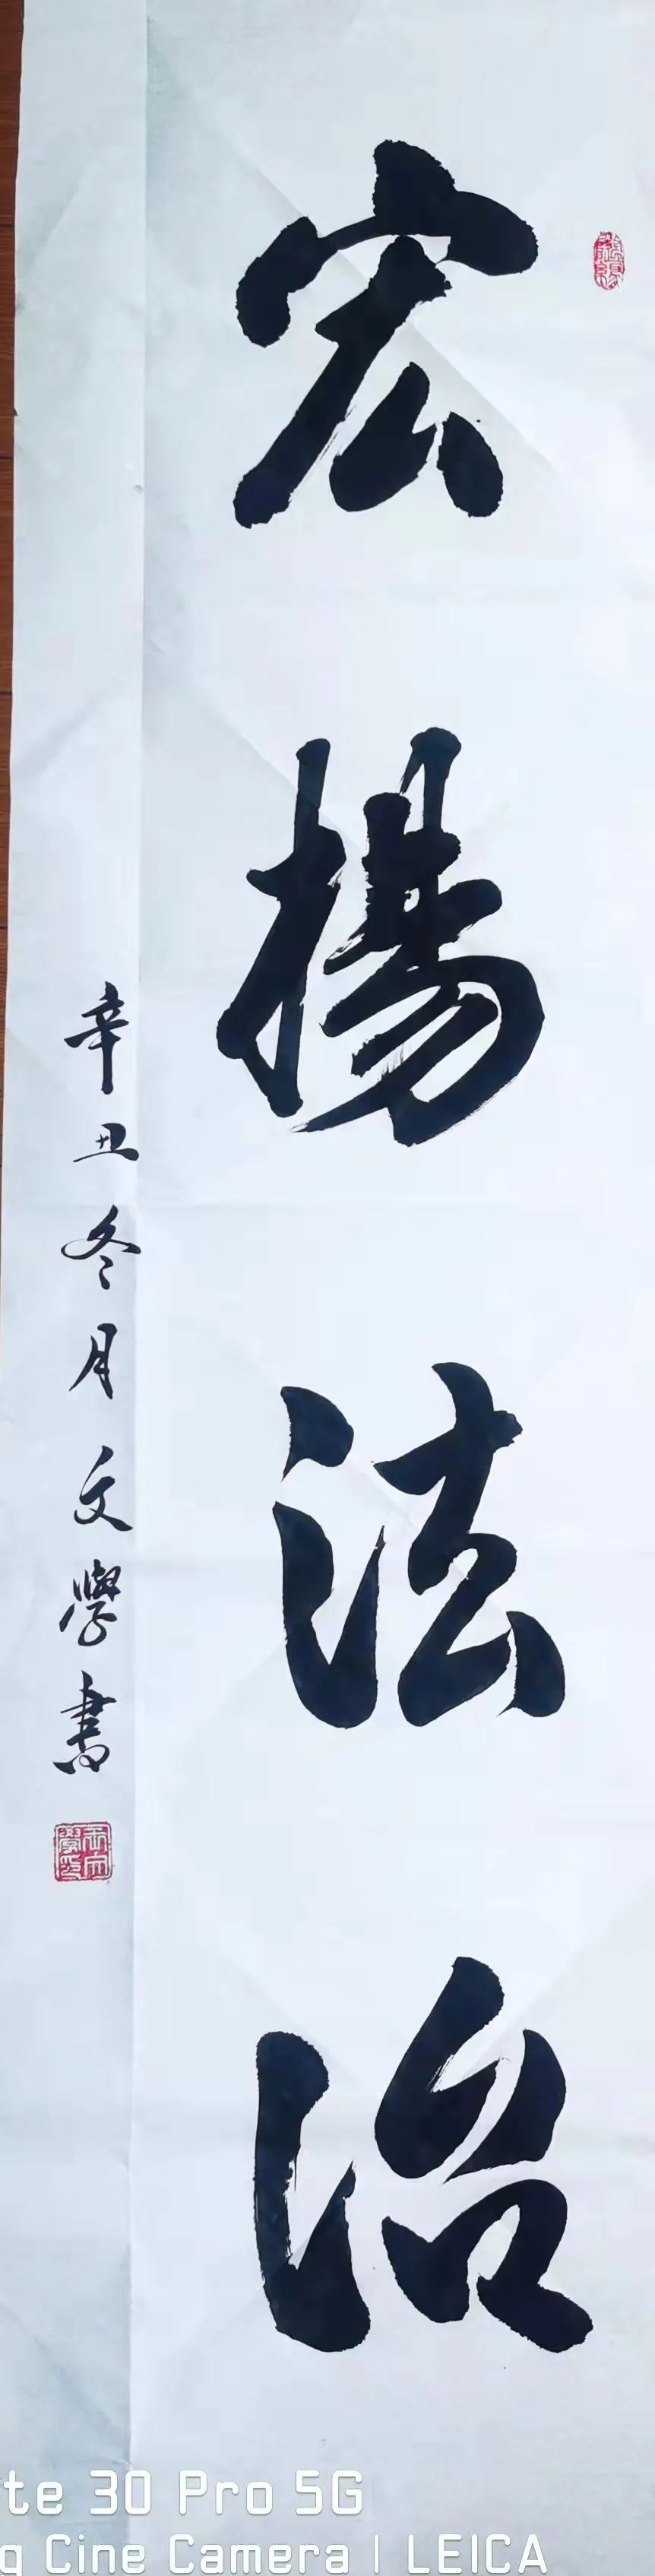 宏揚法治
辛丑冬月文學書
te 30 Pro 5G
g Cine Camera | LEICA